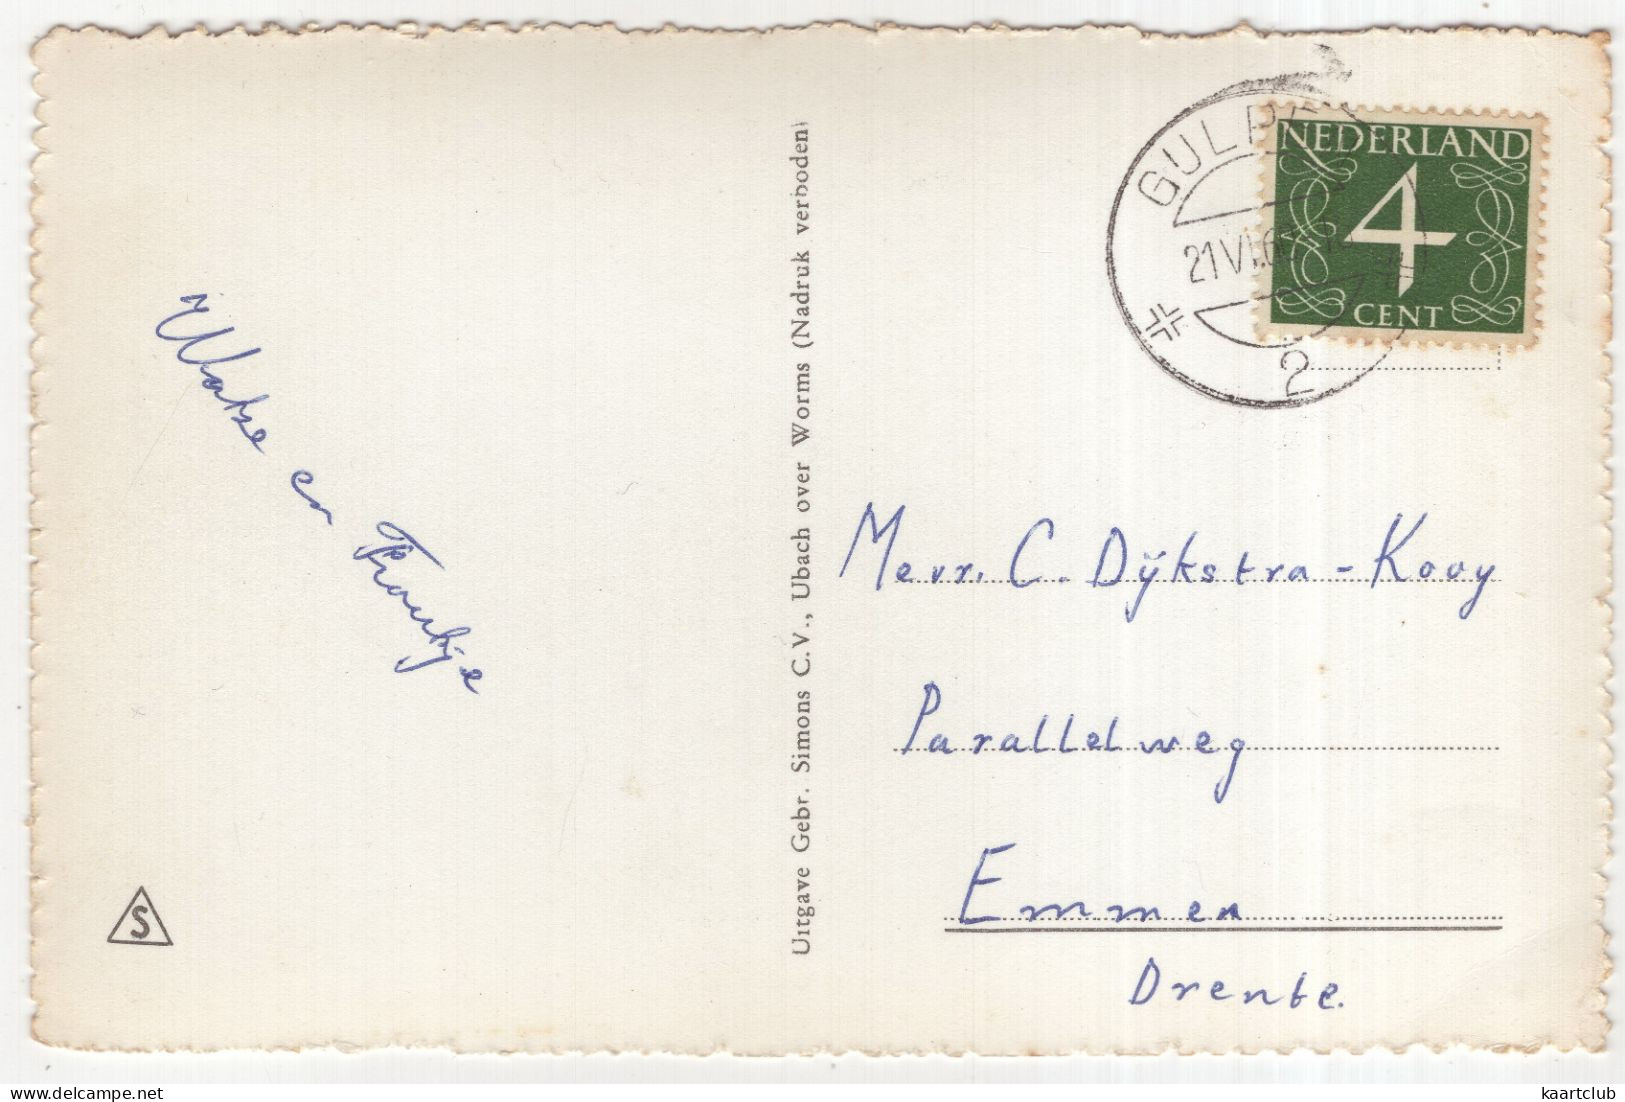 Watse en Froukje
S
Uitgave Gebr. Simons C.V., Ubach over Worms (Nadruk verboden)
GULPEN
21 VI.6
2
NEDERLAND
4
CENT
Mevr. C. Dijkstra-Kooy
Parallelweg
Emmen
Drente.
kaartclub